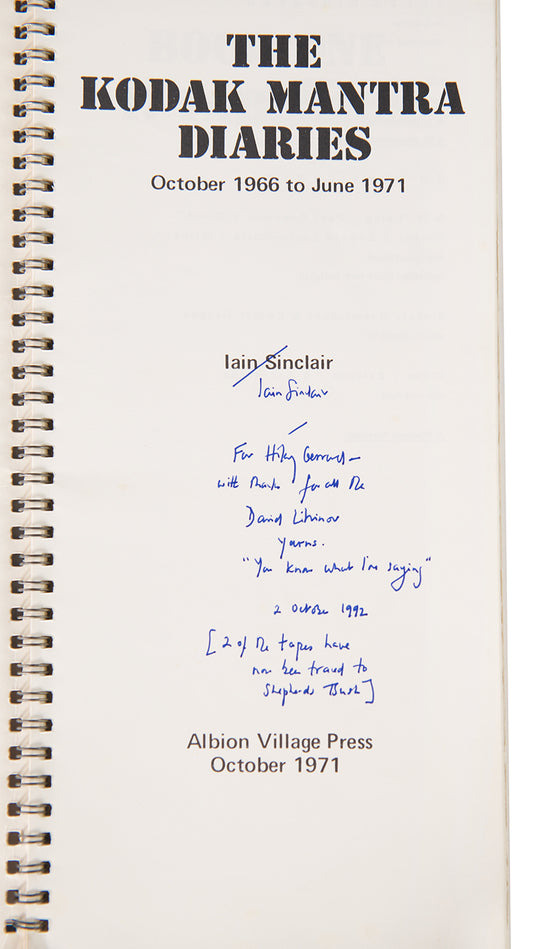 THE
KODAK MANTRA
DIARIES
October 1966 to June 1971
Iain Sinclair
Iain Sinclair
For Hilary Gerrard –
with thanks for all the
David Litvinov
yarns.
"You know what I'm saying"
2 October 1992
[2 of the tapes have
now been traced to
Shepherds Bush]
Albion Village Press
October 1971